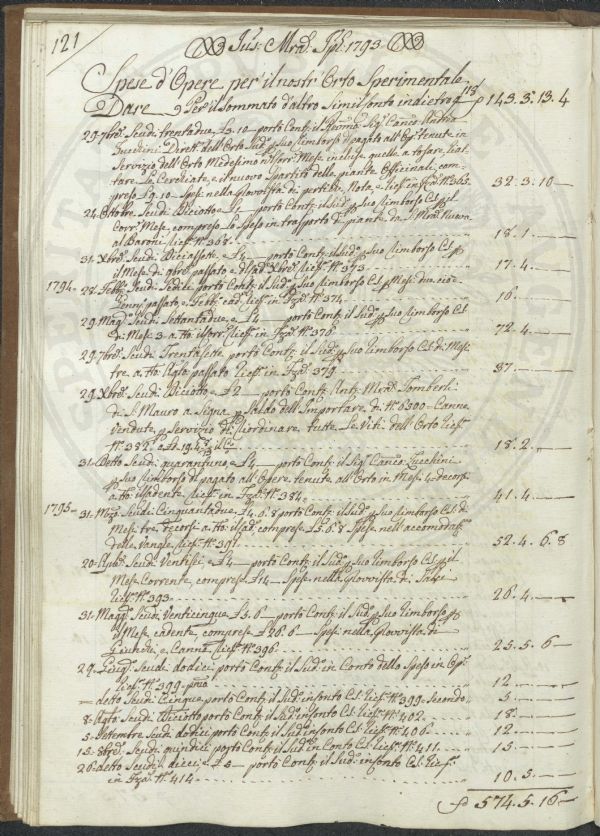 121
Jus: Mrd: Spl: 1793
Spese d'Opere per il nostr'Orto Sperimentale
Dare per il Sommato d'altro Simil Conto indietro 118 143. 3. 13. 4
29. 7bre Scudi trentadue, £3. 10 porto Cont: il Sig: Canco Andrea
Zucchini Dirett: dell'Orto Sud: suo rimborso di pagato all'Opre tenute in
Servizio dell'Orto Medesimo incluse quelle a
tare la Cerchiata, e i nuovi Spartiti delle piante Officinali, com-
preso Spese nella Provvista di pertiche, Nota, e Ricf: in Fza N. 365 32. 3. 10
24. Ottobre Scudi Diciotto e £1 porto Cont: il Sud: suo rimborso Cs: il
Corr: Mese compreso le Spese in trasporto di piante da S. Mra Nuova
al Baroni, Ricf: N. 368 18. 1
31. Xbre Scudi Diciassette e £4 porto Cont: il Sud: suo rimborso Cs:
il Mese di 9bre passato e Xbre Ricf: N. 373 17. 4
1794 22. Febb: Scudi Sedici porto Cont: il Sud: suo rimborso Cs: Mesi due cioè
Genn: passato e Febb: cad: Ricf: in Fza N. 374 16
29. Magg: Scudi Settantadue, e £4 porto Cont: il Sud: suo rimborso Cs:
di Mesi 3 a tto il corr: Ricf: in Fza N. 376 72. 4
29. 7bre Scudi Trentasette porto Cont: il Sud: suo rimborso Cs: di Mesi
tre a tto Agto passato Ricf: in Fza N. 379 37
29. Xbre Scudi Diciotto e £2 porto Cont: Ant: Mra Tomberli
di S. Mauro a Signa Saldo dell'Importare di N. 6300 Canne
Vendute, Servizio di Riordinare tutte le Viti dell'Orto Ricf:
N. 382 18. 2
31. Detto Scudi quarantuno e £4 porto Cont: il Sig: Canco Zucchini
suo rimborso di pagato all'Opere tenute all'Orto in Mesi 4 decorsi
a tto il cadente Ricf: in Fza N. 384 41. 4
1795 31. Mzo Scudi Cinquantadue, £4. 6. 8 porto Cont: il Sud: suo rimborso Cs: di
Mesi tre decorsi a tto il cad: comprese £5. 6. 8 Spese nell'accomodat:
delle Vanghe, Ricf: N. 391 52. 4. 6. 8
20. Aple Scudi Ventisei, e £4 porto Cont: il Sud: suo rimborso Cs: il
Mese Corrente, comprese £14 Spese nella Provvista di
Ricf: N. 393 26. 4
31. Magg: Scudi Venticinque £5. 6 porto Cont: il Sud: suo rimborso
il Mese cadente comprese £26. 6 Spesi nella Provvista di
Giunchi, e Canne Ricf: N. 396 25. 5. 6
29. Giug: Scudi dodici porto Cont: il Sud: in Conto delle Spese in Cs:
Ricf: N. 399 pmo 12
detto Scudi Cinque porto Cont: il Sud: in Conto Cs: Ricf: N. 399 Secondo 5
8. Agto Scudi Diciotto porto Cont: il Sud: in Conto Cs: Ricf: N. 402 18
5. Settembre Scudi dodici porto Cont: il Sud: in Conto Cs: Ricf: N. 406 12
15. 8bre Scudi quindici porto Cont: il Sud: in Conto Cs: Ricf: N. 411 15
26. detto Scudi dieci e £5 porto Cont: il Sud: in Conto Cs: Ricf:
in Fza N. 414 10. 5
574. 5. 16